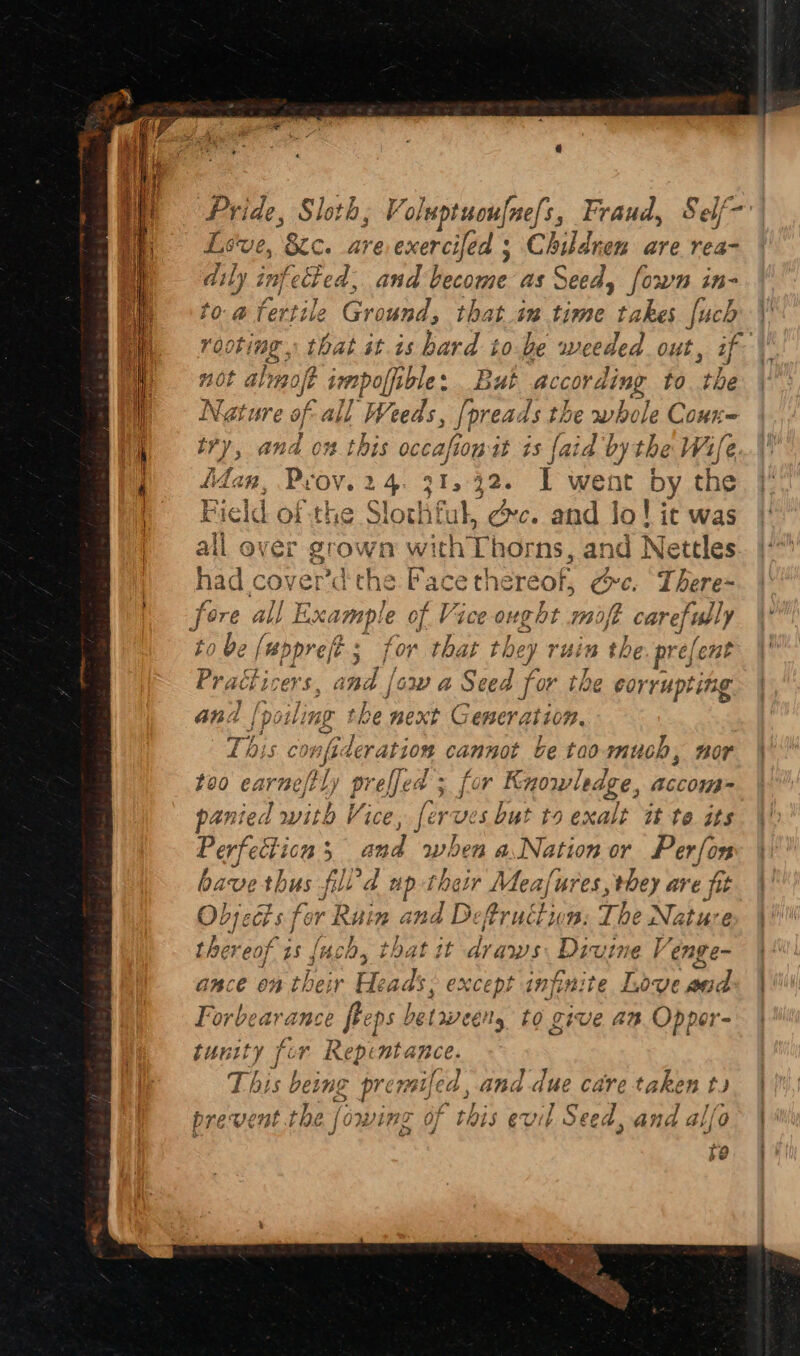 Pride, Sloth, Voluptuouſneſs, Fraud, Self-
Love, &c. are exerciſed; Children are rea-
dily infected, and become as Seed, ſown in-
to a fertile Ground, that in time takes ſuch
rooting, that it is hard to be weeded out, if
not almoſt impoſſible: But according to the
Nature of all Weeds, ſpreads the whole Coun-
try, and on this occaſion it is ſaid by the Wiſe
Man, Prov. 24. 31, 32. I went by the
Field of the Slothful, &c. and lo! it was
all over grown with Thorns, and Nettles
had cover'd the Face thereof, &c. There-
fore all Example of Vice ought moſt carefully
to be ſuppreſt; for that they ruin the preſent
Practicers, and ſow a Seed for the corrupting
and ſpoiling the next Generation.
This conſideration cannot be too much, nor
too earneſtly preſſed; for Knowledge, accom-
panied with Vice, ſerves but to exalt it to its
Perfection; and when a Nation or Perſon
have thus fill'd up their Meaſures, they are fit
Objects for Ruin and Deſtruction: The Nature
thereof is ſuch, that it draws Divine Venge-
ance on their Heads, except infinite Love and
Forbearance ſteps between, to give an Oppor-
tunity for Repentance.
This being premiſed, and due care taken to
prevent the ſowing of this evil Seed, and alſo
to